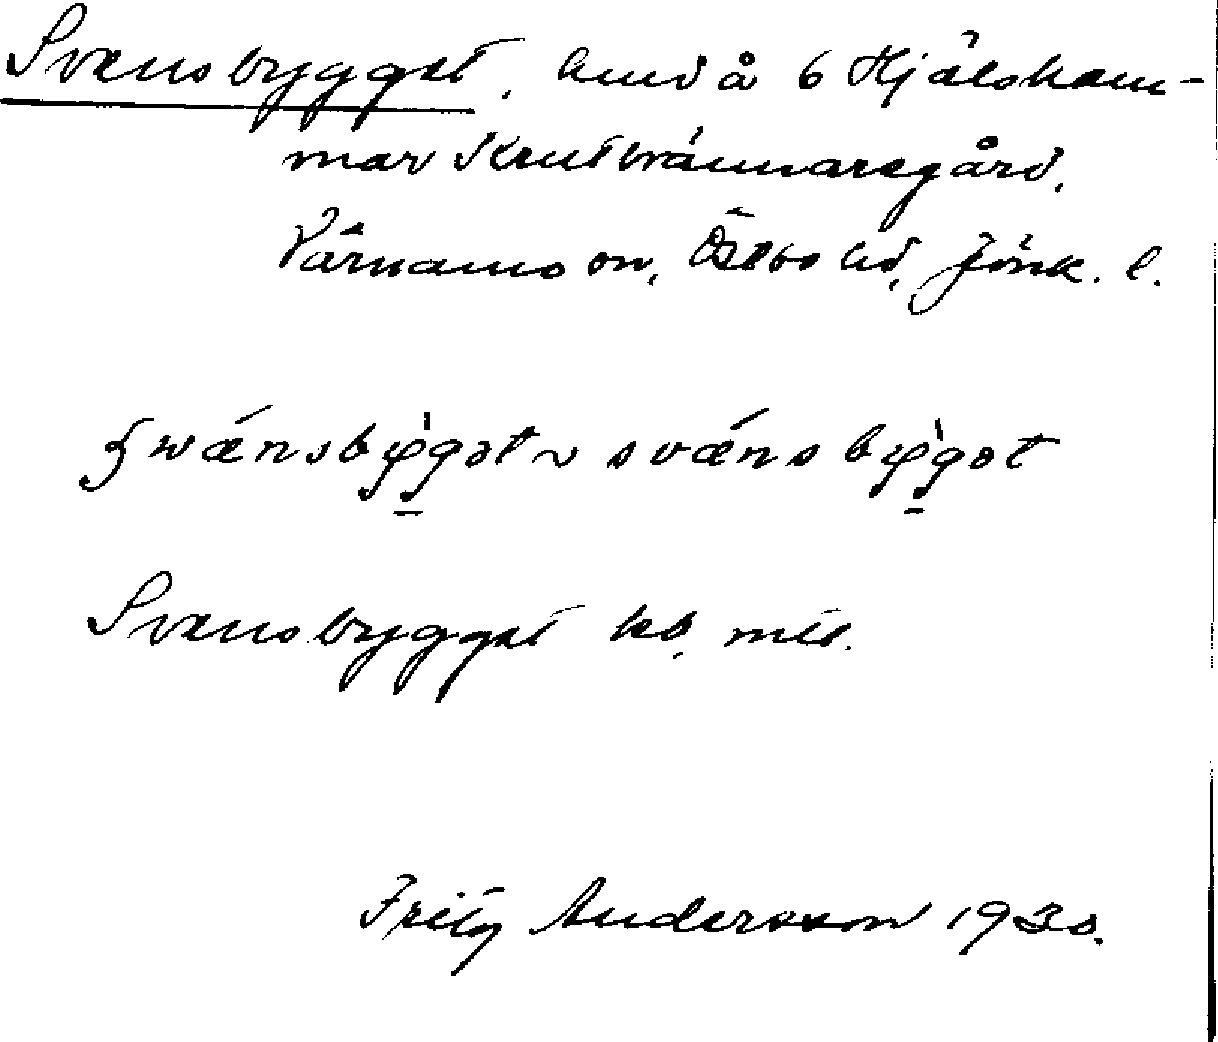 Svensbygget, lund å 6 Hjälsham-
mar Krutbrännaregård,
Värnamo sn, Östbo hd, Jönk. l.
swænsbygət ~ svænsbygət
Svensbygget kb. mtl.
Fritz Andersson 1930.